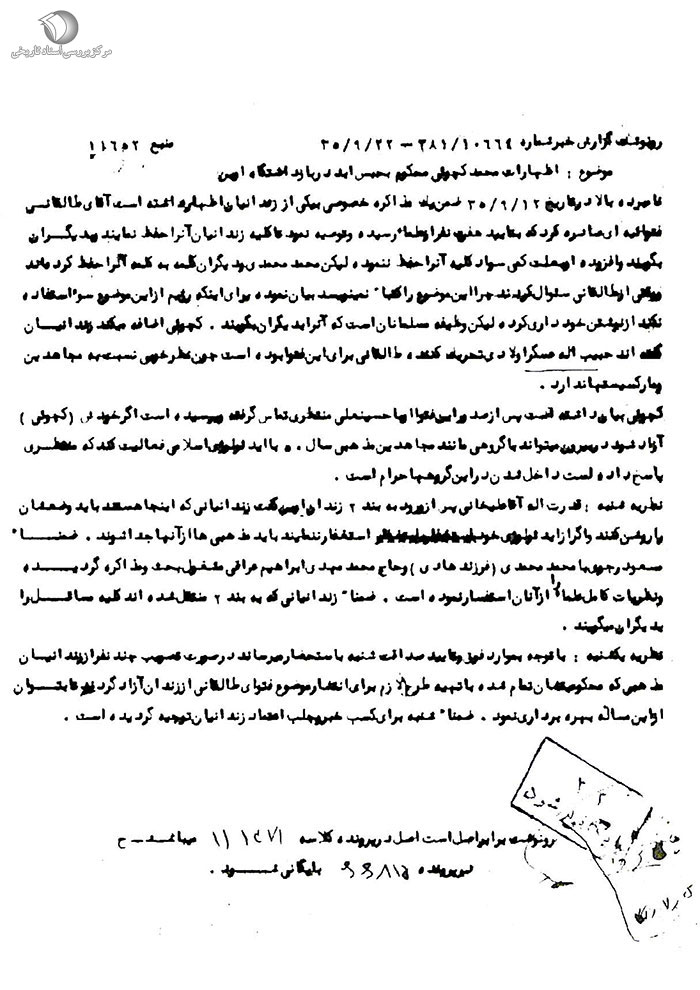 مرکز بررسی اسناد تاریخی
رونوشت گزارش خبر شماره ۳۸۱/۱۰۶۶۴ – ۳۵/۹/۲۲ منبع ۱۱۶۵۲
موضوع : اظهارات محمد کچوئی محکوم بحبس ابد در بازداشتگاه اوین
نامبرده بالا در تاریخ ۳۵/۹/۱۲ ضمن یک مذاکره خصوصی بیکی از زندانیان اظهار داشته است آقای طالقانی
فتوائیه ای صادره کرد که بتایید هفت نفر از علماء رسیده و توصیه نمود تا کلیه زندانیان آنرا حفظ نمایند و بدیگران
بگویند و افزوده او بعلت کمی سواد کلیه آنرا حفظ ننموده لیکن محمد محمدی و دیگران کلمه به کلمه آنرا حفظ کرده‌اند
ووقتی از طالقانی سئوال کردند چرا این موضوع را کتبا" نمینویسد بیان نموده برای اینکه رژیم از این موضوع سوء استفاده
نکند از نوشتن خودداری کرده لیکن وظیفه مسلمانان است که آنرا بدیگران بگویند . کچوئی اضافه میکند زندانیان
گفته اند حبیب اله عسگراولادی تحریک کننده طالقانی برای این فتوا بوده است چون نظر خوبی نسبت به مجاهدین
ومارکسیستها ندارد .
کچوئی بیان داشته است پس از صدور این فتوا با حسینعلی منتظری تماس گرفته و پرسیده است اگر خودش (کچوئی)
آزاد شود در بیرون میتواند با گروهی مانند مجاهدین مذهبی سال ۵۰ با ایدئولوژی اسلامی فعالیت کند که منتظری
پاسخ داده است داخل شدن در این گروهها حرام است .
نظریه شنبه : قدرت اله آقاعلیخانی پس از ورود به بند ۲ زندان اوین گفت زندانیانی که اینجا هستند باید وضعشان
را روشن کنند و اگر از ایدئولوژی خود استغفار ننمایند باید مذهبی ها از آنها جدا شوند . ضمنا"
مسعود رجوی با محمد محمدی (فرزند هادی) و حاج محمد مهدی ابراهیم عراقی مشغول بحث و مذاکره گردیده
ونظریات کامل علماء را از آنان استفسار نموده است . ضمنا" زندانیانی که به بند ۲ منتقل شده اند کلیه مسائل را
بدیگران میگویند .
نظریه یکشنبه : با توجه بموارد فوق و تایید صداقت شنبه باستحضار میرساند در صورت تصویب چند نفر از زندانیان
مذهبی که محکومیتشان تمام شده با تهیه طرح لازم برای انتشار موضوع فتوای طالقانی از زندان آزاد گردند تا بتوان
از این مساله بهره برداری نمود . ضمنا" شنبه برای کسب خبر و جلب اعتماد زندانیان توجیه گردیده است .
رونوشت برابر اصل است اصل در پرونده کلاسه
در پرونده بایگانی شود .